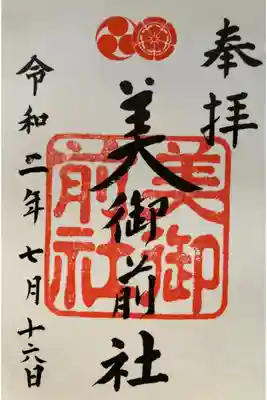 奉拝
美御前社
美御前社
令和二年七月十六日